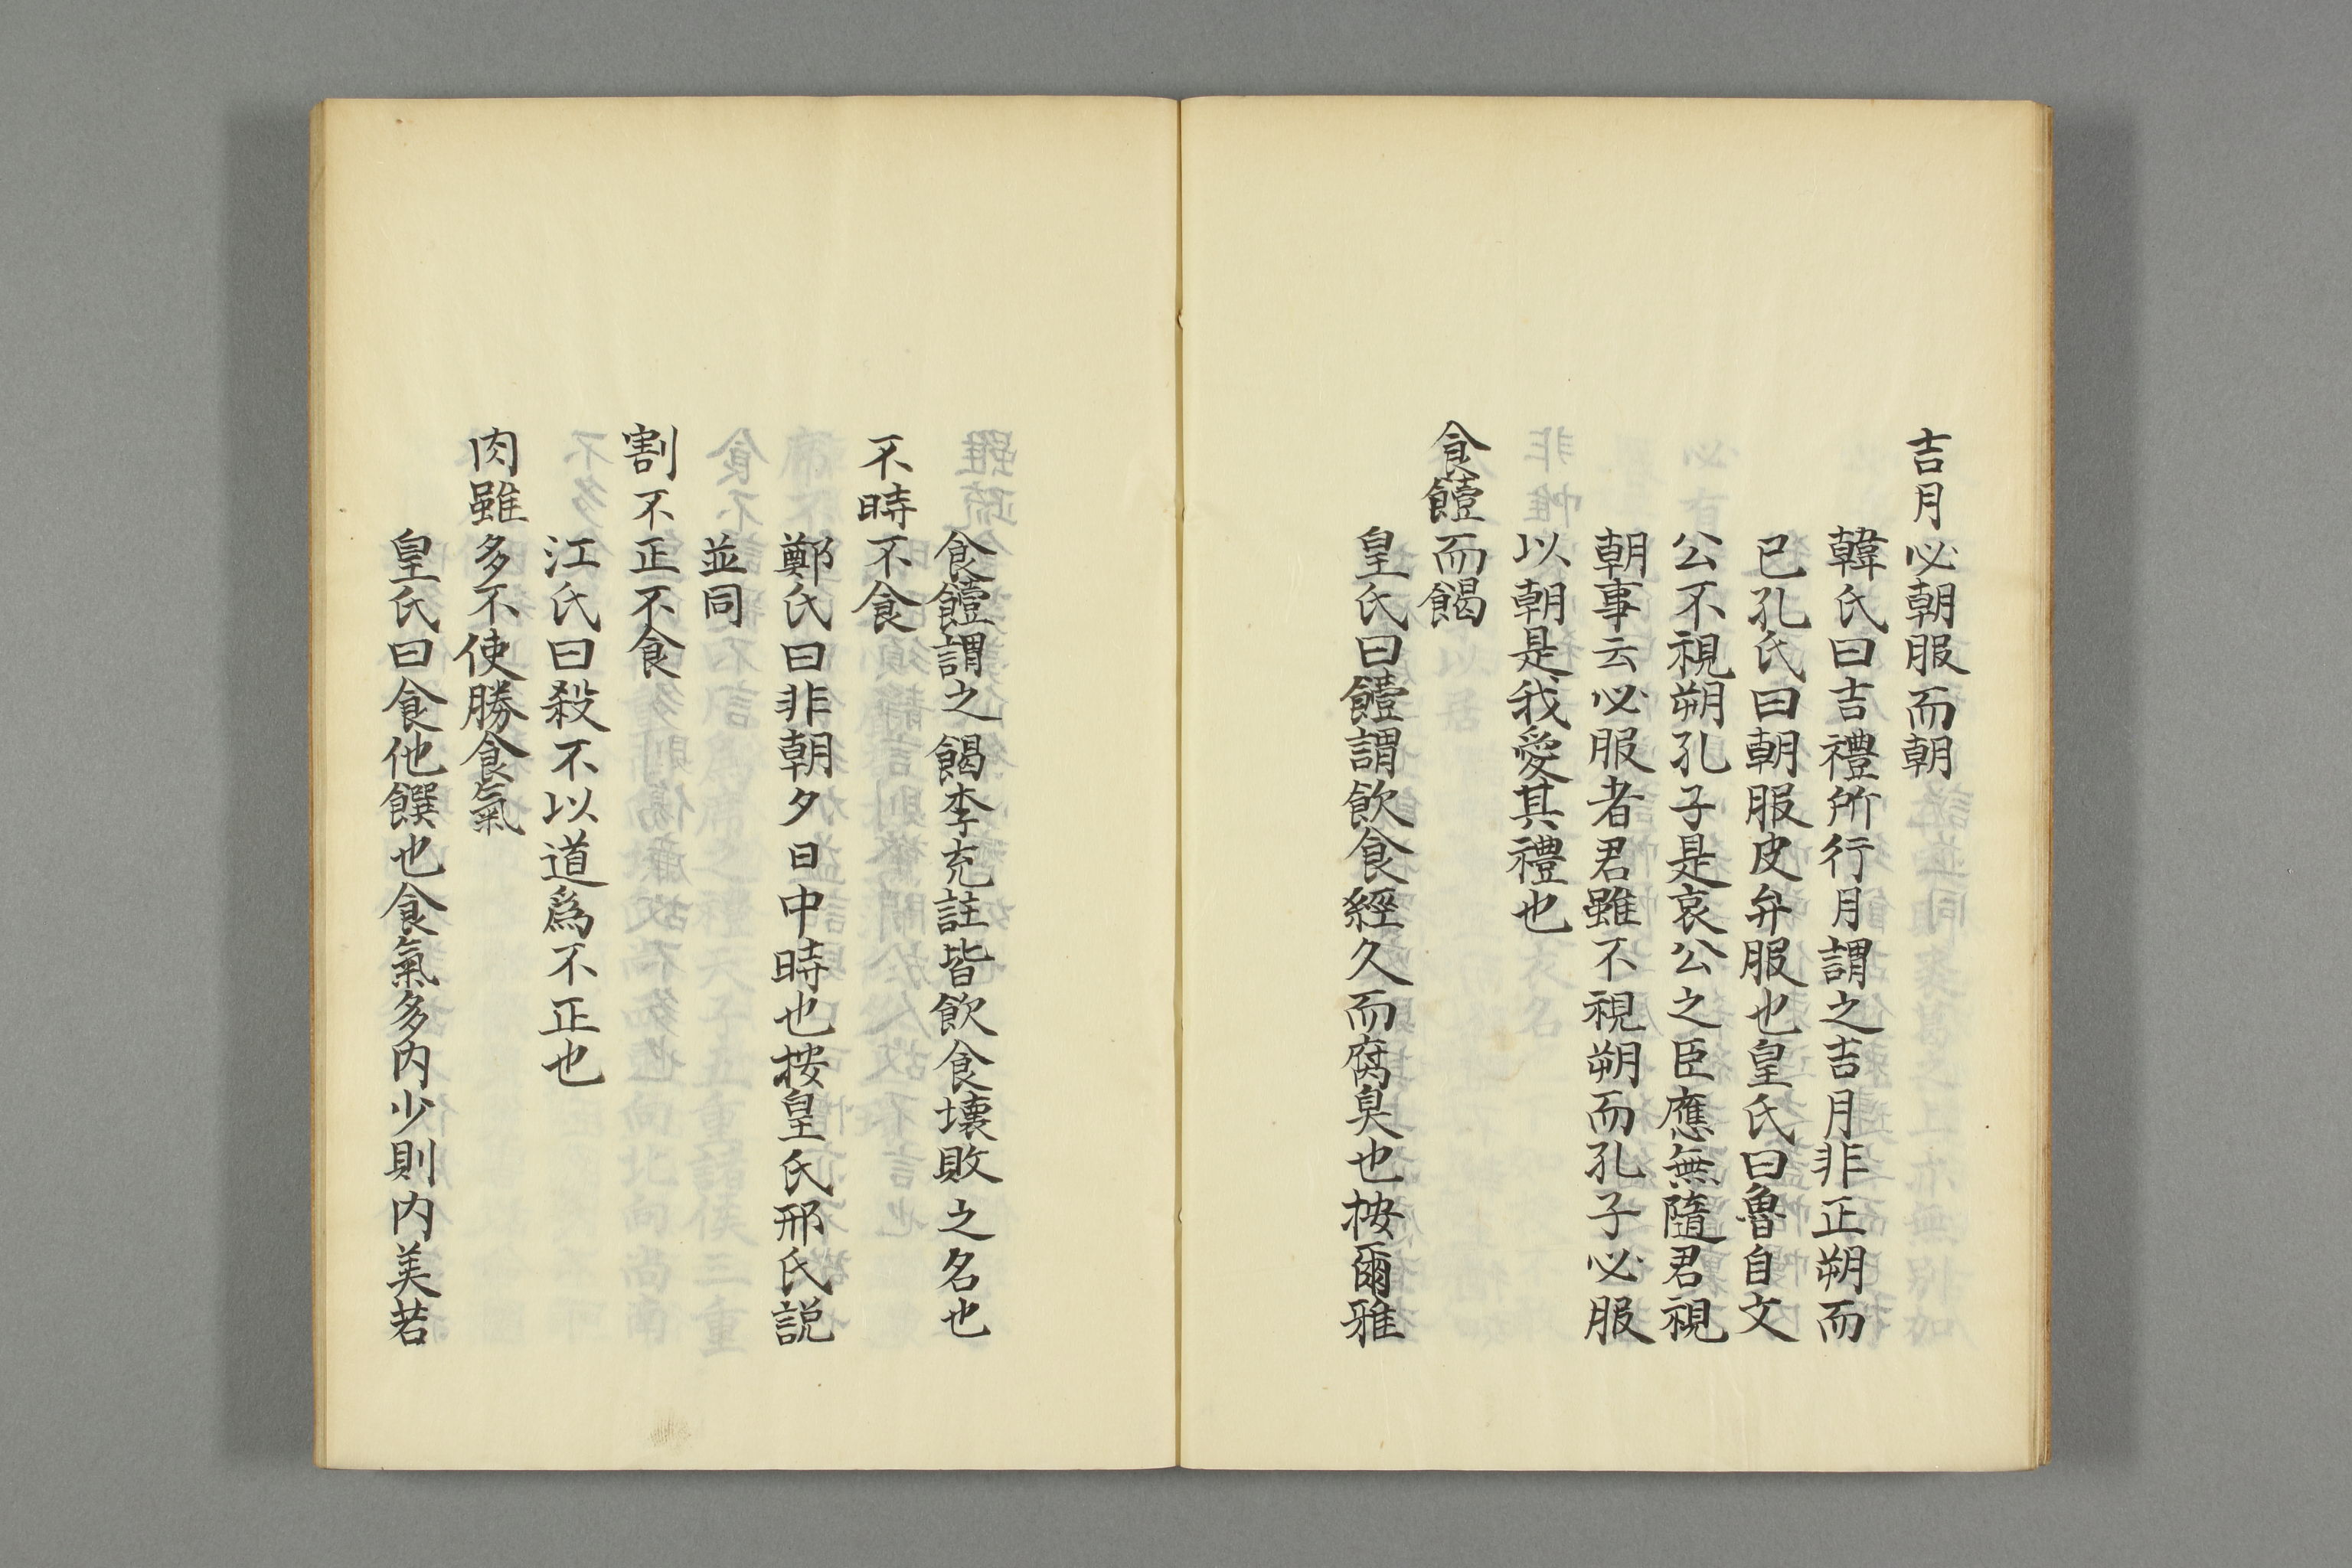 吉月必朝服而朝
韓氏曰吉禮所行月謂之吉月非正朔而
已孔氏曰朝服皮弁服也皇氏曰魯自文
公不視朔孔子是哀公之臣應無隨君視
朝事云必服者君雖不視朔而孔子必服
以朝是我愛其禮也
食饐而餲
皇氏曰饐謂飲食經久而腐臭也按爾雅
食饐謂之餲李充註皆飲食壊敗之名也
不時不食
鄭氏曰非朝夕日中時也按皇氏邢氏説
並同
割不正不食
江氏曰殺不以道爲不正也
肉雖多不使勝食氣
皇氏曰食他饌也食氣多肉少則肉美若